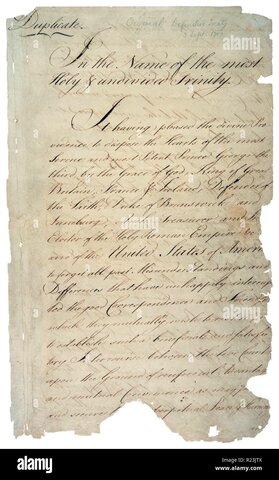 Duplicate.
Original Definitive Treaty
3 Sept. 1783
In the Name of the most
Holy & undivided Trinity.
It having pleased the divine Pro
vidence to dispose the Hearts of the most
Serene and most Potent Prince George the
third, by the Grace of God, King of Great
Britain, France & Ireland, Defender of
the Faith, Duke of Brunswick and
Lunebourg, Arch Treasurer and
Elector of the Holy Roman Empire
and of the United States of Americ
to forget all past Misunderstandings and
Differences that have unhappily interrupted
the good Correspondence and Friend
which they mutually wish to
to establish such a beneficial and satisfac
tory Intercourse between the two Countr
upon the Ground of reciprocal Advantages
and mutual Convenience as may
and secure to both perpetual Peace & Harmon
alamy
alamy stock photo
R23JTX